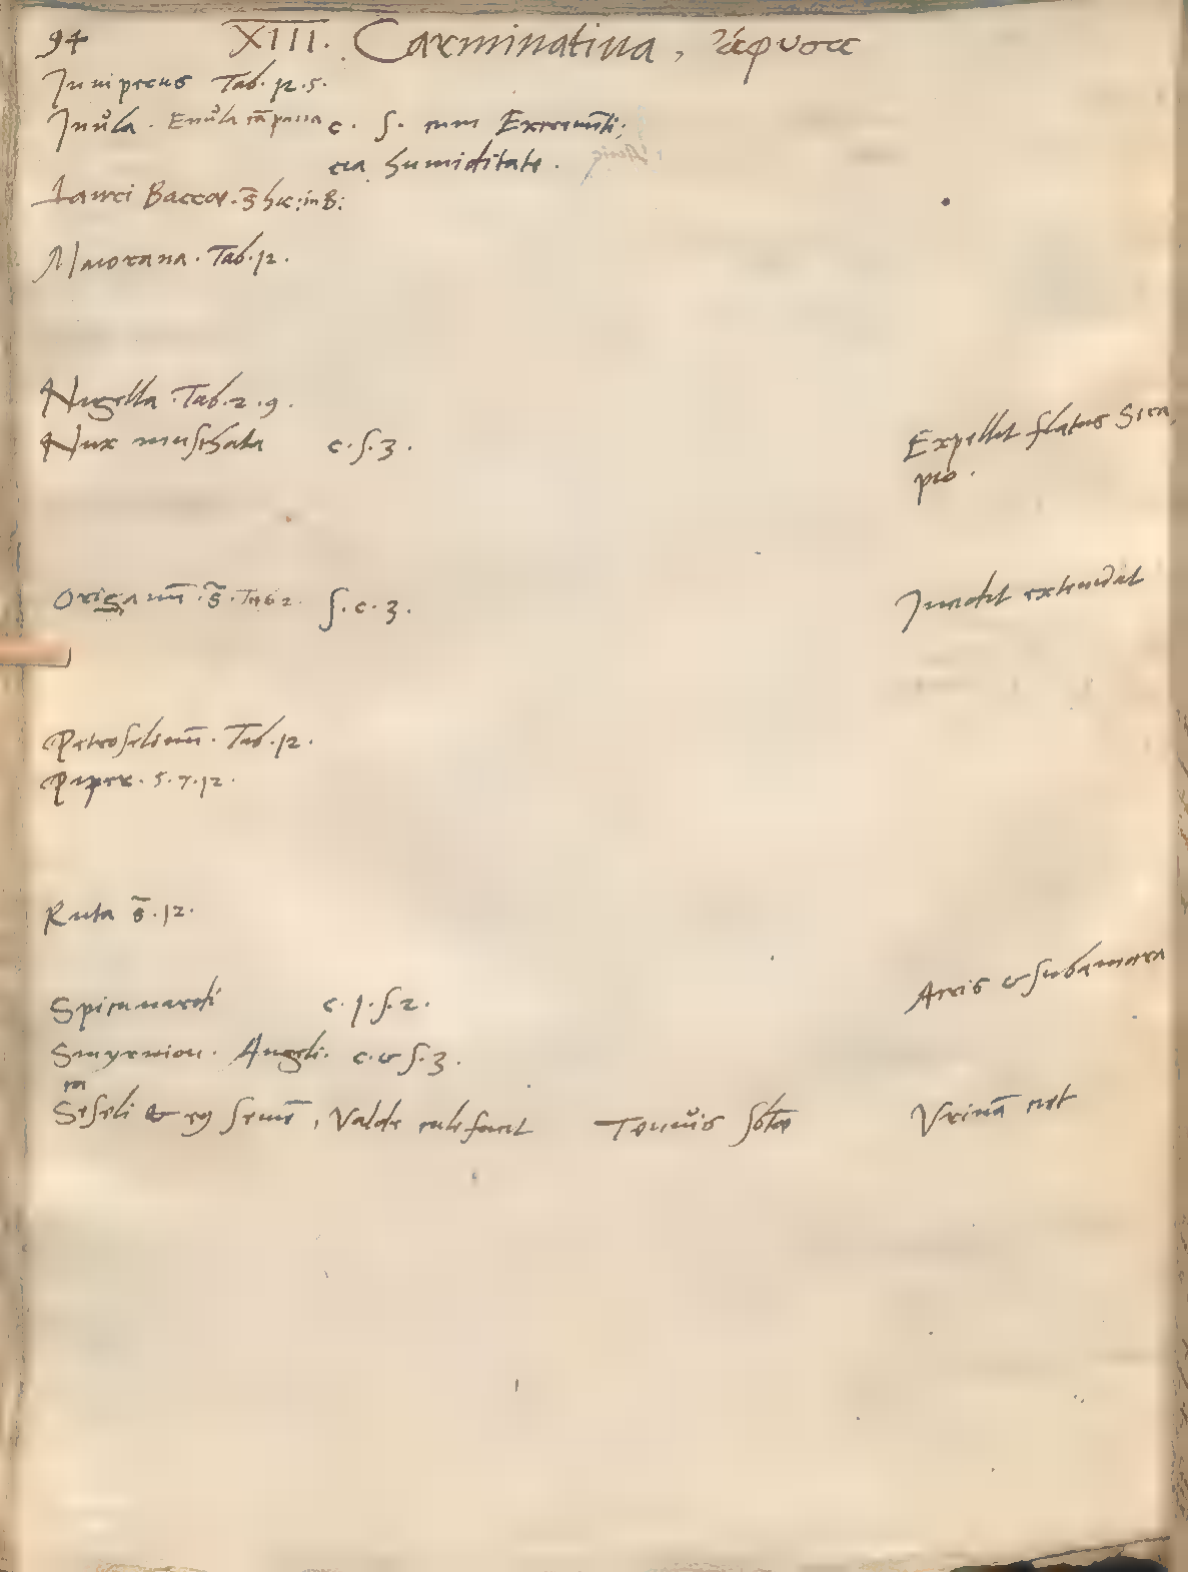 94 XIII. Carminatiua, ἄφυσα
Juniperus Tab. 12. 5.
Jnůla. Enůla cāpana c. s. cum Excremēti;
cia humiditate.
Lauri Baccar. s̃ hic: in B:
Maiorana. Tab. 12.
Nigella. Tab. 2. 9.
Nux muschata c. s. 3. Expellit flatus Sina,
pio.
Origanū. s̃. Tab 2. s. c. 3. Incidit extenuat
Petroselinū. Tab. 12.
Piper. 5. 7. 12.
Ruta s̃. 12.
Spicanardi c. 1. s. 2. Acris & subamara
Smyrnion. Angeli. c. & s. 3.
Seseli & eius semē, Valde calefacit Tenůis Urinā ciet